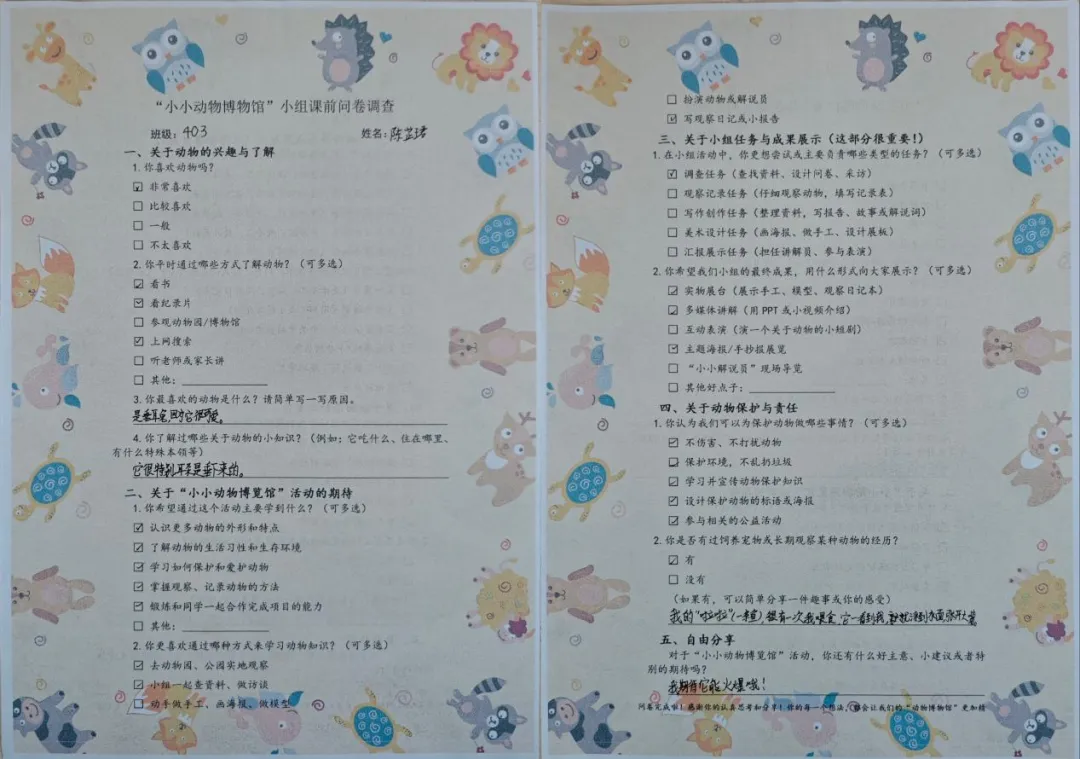 “小小动物博物馆”小组课前问卷调查
班级：403 姓名：陈芷珺
一、关于动物的兴趣与了解
1.你喜欢动物吗？
☑ 非常喜欢
☐ 比较喜欢
☐ 一般
☐ 不太喜欢
2.你平时通过哪些方式了解动物？（可多选）
☑ 看书
☑ 看纪录片
☐ 参观动物园/博物馆
☑ 上网搜索
☐ 听老师或家长讲
☐ 其他：
3.你最喜欢的动物是什么？请简单写一写原因。
是垂耳兔,因为它很可爱。
4.你了解过哪些关于动物的小知识？（例如：它吃什么、住在哪里、
有什么特殊本领等）
它很特别,耳朵是垂下来的。
二、关于“小小动物博览馆”活动的期待
1.你希望通过这个活动主要学到什么？（可多选）
☑ 认识更多动物的外形和特点
☑ 了解动物的生活习性和生存环境
☑ 学习如何保护和爱护动物
☑ 掌握观察、记录动物的方法
☑ 锻炼和同学一起合作完成项目的能力
☐ 其他：
2.你更喜欢通过哪种方式来学习动物知识？（可多选）
☑ 去动物园、公园实地观察
☑ 小组一起查资料、做访谈
☐ 动手做手工、画海报、做模型
☐ 扮演动物或解说员
☑ 写观察日记或小报告
三、关于小组任务与成果展示（这部分很重要！）
1.在小组活动中，你更想尝试或主要负责哪些类型的任务？（可多选）
☑ 调查任务（查找资料、设计问卷、采访）
☐ 观察记录任务（仔细观察动物，填写记录表）
☐ 写作创作任务（整理资料，写报告、故事或解说词）
☐ 美术设计任务（画海报、做手工、设计展板）
☐ 汇报展示任务（担任讲解员、参与表演）
2.你希望我们小组的最终成果，用什么形式向大家展示？（可多选）
☑ 实物展台（展示手工、模型、观察日记本）
☑ 多媒体讲解（用 PPT 或小视频介绍）
☐ 互动表演（演一个关于动物的小短剧）
☑ 主题海报/手抄报展览
☐ “小小解说员”现场导览
☐ 其他好点子：
四、关于动物保护与责任
1.你认为我们可以为保护动物做哪些事情？（可多选）
☑ 不伤害、不打扰动物
☑ 保护环境，不乱扔垃圾
☑ 学习并宣传动物保护知识
☑ 设计保护动物的标语或海报
☑ 参与相关的公益活动
2.你是否有过饲养宠物或长期观察某种动物的经历？
☑ 有
☐ 没有
（如果有，可以简单分享一件趣事或你的感受）
我的“啦啦”(一条鱼)很有一次我喂食,它一看到我,
五、自由分享
对于“小小动物博览馆”活动，你还有什么好主意、小建议或者特
别的期待吗？
我期待它能火爆哦！
问卷完成啦！感谢你的认真思考和分享！你的每一个想法，都会让我们的“动物博物馆”更加精